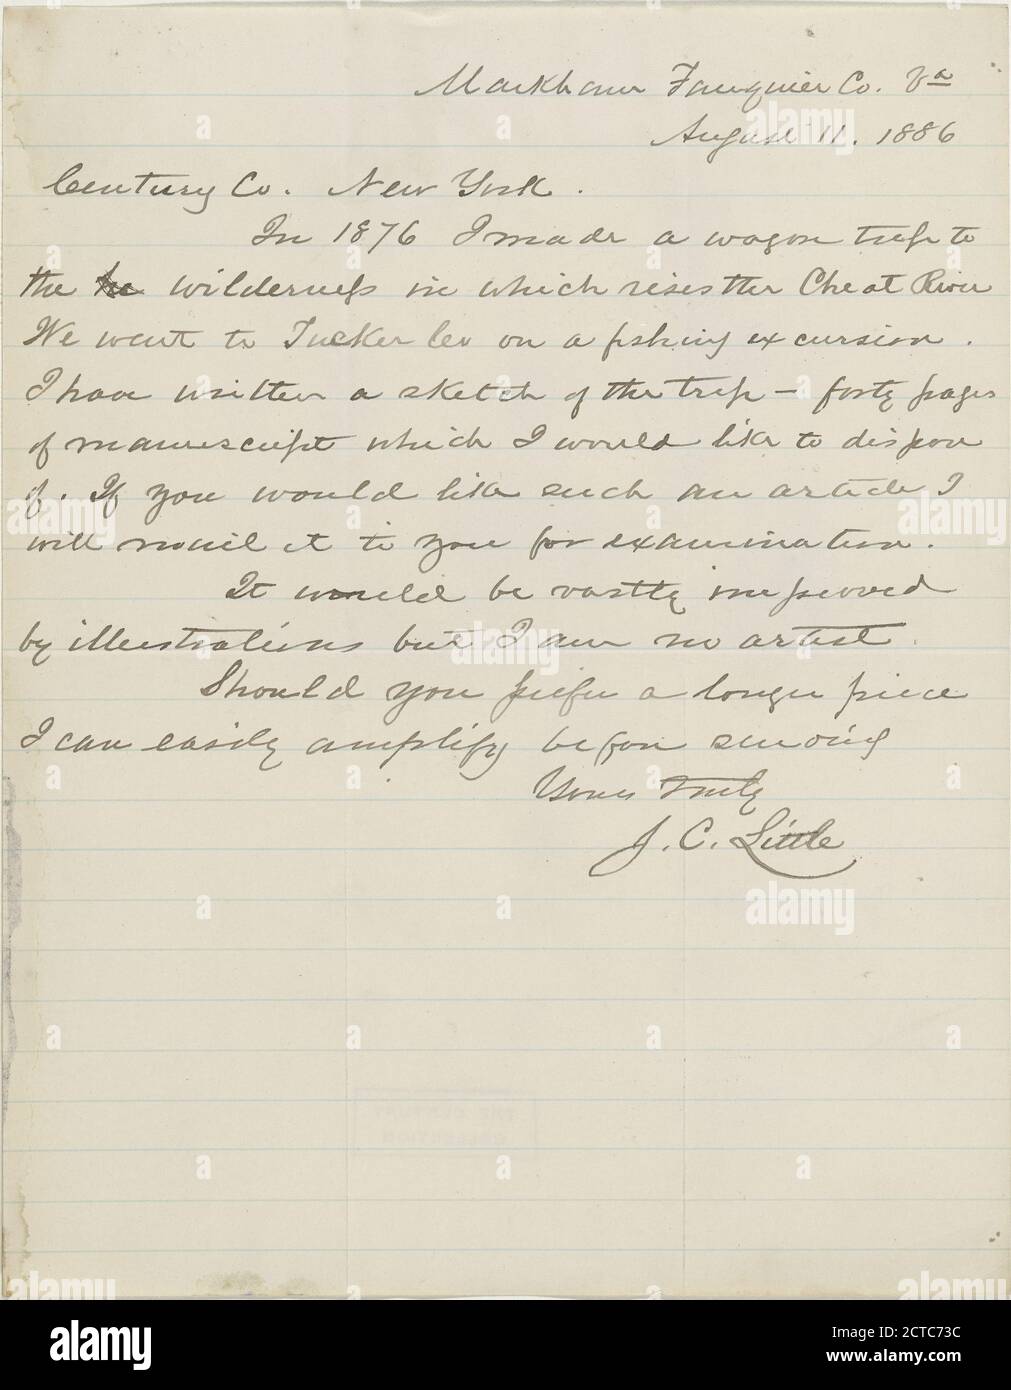 Markham Fauquier Co. Va
August 11. 1886
Century Co. New York.
In 1876 I made a wagon trip to
the wilderness in which rises the Cheat River
We went to Tucker Co on a fishing excursion.
I have written a sketch of the trip – forty pages
of manuscript which I would like to dispose
of. If you would like such an article I
will mail it to you for examination.
It would be vastly improved
by illustrations but I am no artist.
Should you prefer a longer piece
I can easily amplify before sending
Yours truly
J. C. Little
alamy
Image ID: 2CTC73C
www.alamy.com